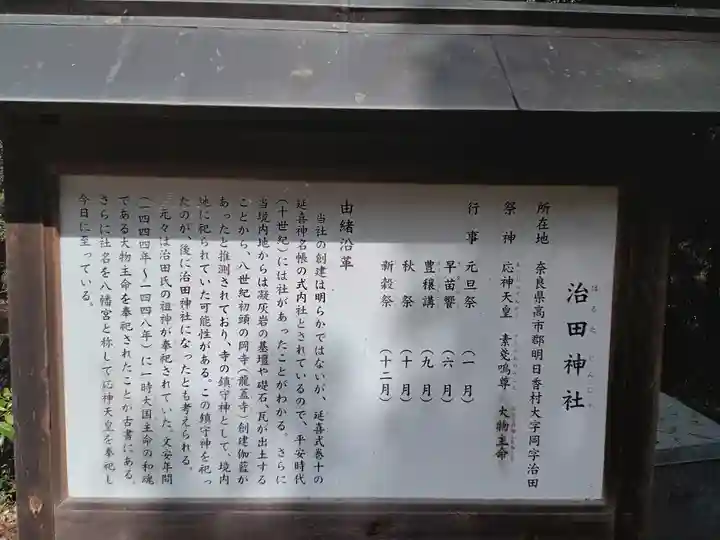 治田神社
はるたじんじゃ
所在地 奈良県高市郡明日香村大字岡字治田
祭神 応神天皇 素戔鳴尊 大物主命
行事 元旦祭 (一月)
早苗饗 (六月)
豊穣講 (九月)
秋祭 (十月)
新穀祭 (十二月)
由緒沿革
当社の創建は明らかではないが、延喜式巻十の
延喜神名帳の式内社とされているので、平安時代
(十世紀)には社があったことがわかる。さらに
当境内地からは凝灰岩の基壇や礎石・瓦が出土する
ことから、八世紀初頭の岡寺(龍盖寺)創建伽藍が
あったと推測されており、寺の鎮守神として、境内
地に祀られていた可能性がある。この鎮守神を祀っ
たのが、後に治田神社になったとも考えられる。
元々は治田氏の祖神が奉祀されていた。文安年間
(一四四四年〜一四四八年)に一時大国主命の和魂
である大物主命を奉祀されたことが古書にある。
さらに社名を八幡宮と称して応神天皇を奉祀し
今日に至っている。